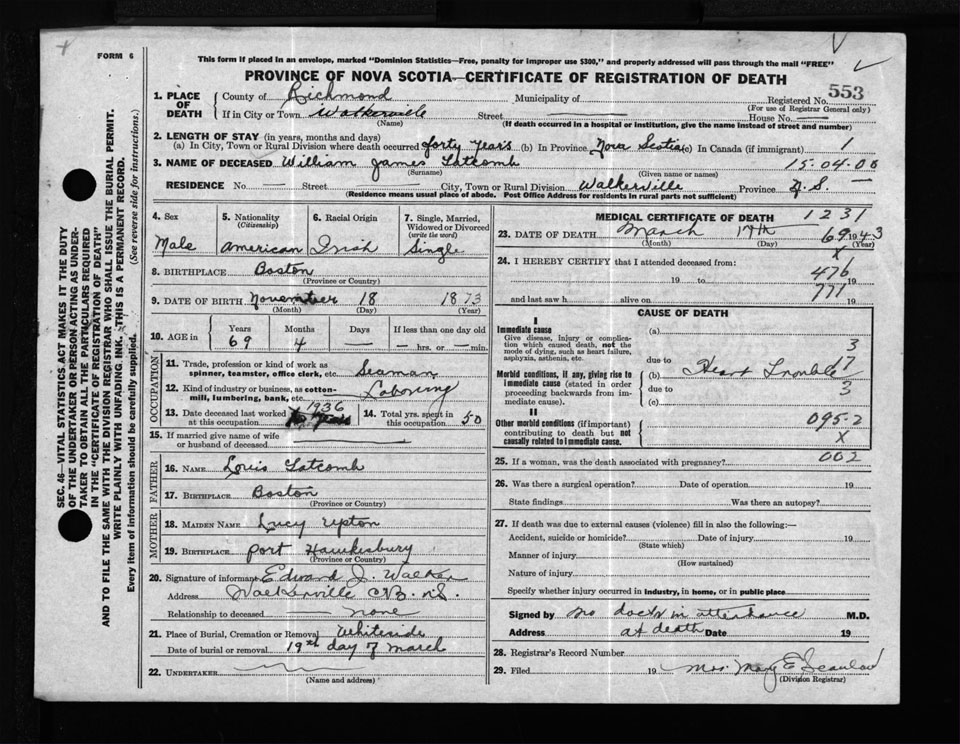 FORM 6
This form if placed in an envelope, marked "Dominion Statistics—Free, penalty for improper use $300," and properly addressed will pass through the mail "FREE"
PROVINCE OF NOVA SCOTIA—CERTIFICATE OF REGISTRATION OF DEATH
1. PLACE OF DEATH
County of Richmond Municipality of Registered No. 553
(For use of Registrar General only)
If in City or Town Walkerville Street House No.
(Name) (If death occurred in a hospital or institution, give the name instead of street and number)
2. LENGTH OF STAY (in years, months and days)
(a) In City, Town or Rural Division where death occurred forty years (b) In Province Nova Scotia (c) In Canada (if immigrant) 1
3. NAME OF DECEASED William James Latcomb 15.04.06
(Surname) (Given name or names)
RESIDENCE No. — Street City, Town or Rural Division Walkerville Province N.S. —
(Residence means usual place of abode. Post Office Address for residents in rural parts not sufficient)
4. Sex Male
5. Nationality (Citizenship) American
6. Racial Origin Irish
7. Single, Married, Widowed or Divorced (write the word) Single
8. BIRTHPLACE Boston
(Province or Country)
9. DATE OF BIRTH November 18 1873
(Month) (Day) (Year)
10. AGE in Years Months Days If less than one day old
69 4 — — hrs. or — min.
OCCUPATION
11. Trade, profession or kind of work as spinner, teamster, office clerk, etc. Seaman
12. Kind of industry or business, as cotton-mill, lumbering, bank, etc. Laboring
13. Date deceased last worked at this occupation 1936
14. Total yrs. spent in this occupation 50
15. If married give name of wife or husband of deceased
FATHER
16. NAME Louis Latcomb
17. BIRTHPLACE Boston
(Province or Country)
MOTHER
18. MAIDEN NAME Lucy Upton
19. BIRTHPLACE Port Hawkesbury
(Province or Country)
20. Signature of informant Edward J. Walker
Address Walkerville C.B. N.S.
Relationship to deceased none
21. Place of Burial, Cremation or Removal Whiteside
Date of burial or removal 19th day of March
22. UNDERTAKER
(Name and address)
MEDICAL CERTIFICATE OF DEATH 1231
23. DATE OF DEATH March 17th 69 1943
(Month) (Day) (Year)
x
24. I HEREBY CERTIFY that I attended deceased from:
19 to 476 19
and last saw h alive on 777 19
CAUSE OF DEATH
I
Immediate cause (a)
Give disease, injury or complication which caused death, not the mode of dying, such as heart failure, asphyxia, asthenia, etc.
due to 3
Morbid conditions, if any, giving rise to immediate cause (stated in order proceeding backwards from immediate cause).
(b) Heart Trouble 7
due to 3
(c)
II
Other morbid conditions (if important) contributing to death but not causally related to immediate cause.
095.2
X
25. If a woman, was the death associated with pregnancy? 002
26. Was there a surgical operation? Date of operation 19
State findings Was there an autopsy?
27. If death was due to external causes (violence) fill in also the following:—
Accident, suicide or homicide? Date of injury 19
(State which)
Manner of injury
(How sustained)
Nature of injury
Specify whether injury occurred in industry, in home, or in public place
Signed by no doctor in attendance M.D.
Address at death Date 19
28. Registrar's Record Number
29. Filed 19 Mrs. Mary E Scanlan
(Division Registrar)
SEC. 46—VITAL STATISTICS ACT MAKES IT THE DUTY
OF THE UNDERTAKER OR PERSON ACTING AS UNDER-
TAKER TO OBTAIN ALL THE PARTICULARS REQUIRED
IN THE "CERTIFICATE OF REGISTRATION OF DEATH"
AND TO FILE THE SAME WITH THE DIVISION REGISTRAR WHO SHALL ISSUE THE BURIAL PERMIT.
WRITE PLAINLY WITH UNFADING INK. THIS IS A PERMANENT RECORD.
Every item of information should be carefully supplied. (See reverse side for instructions.)